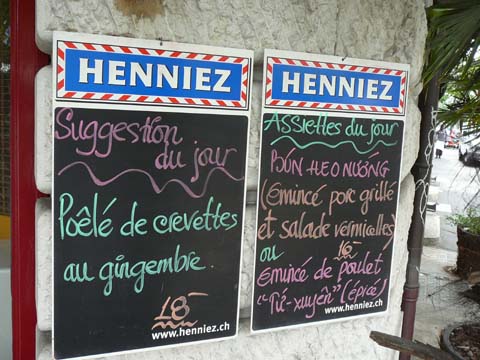 HENNIEZ
Suggestion
du jour
Poêlé de crevettes
au gingembre.
18.-
www.henniez.ch
HENNIEZ
Assiettes du jour
BÚN HEO NƯỚNG
(émincé porc grillé
et salade vermicelles)
ou 16.-
Emincé de poulet
"Tứ-xuyên" (épicé)
www.henniez.ch